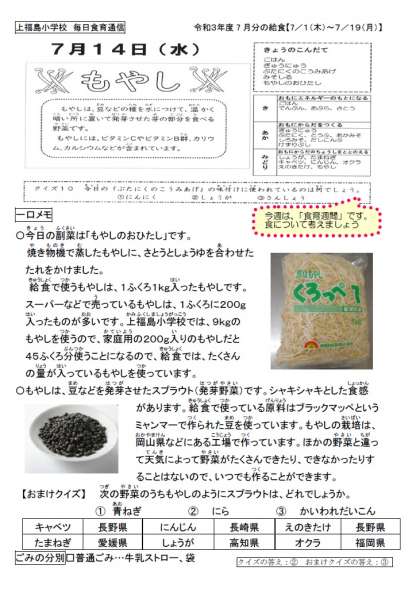 上福島小学校 毎日食育通信
令和3年度7月分の給食【7/1(木)～7/19(月)】
7月14日(水)
もやし
もやしは、豆などの種を水につけて、温かく
暗い所に置いて発芽させた芽の部分を食べる
野菜です。
もやしには、ビタミンCやビタミンB群、カリウ
ム、カルシウムなどが含まれています。
きょうのこんだて
ごはん
ぎゅうにゅう
ぶたにくのこうみあげ
みそしる
もやしのおひたし
き
おもにエネルギーのもとになる
ごはん
でんぷん、あぶら、さとう
あか
おもにからだをつくる
ぎゅうにゅう
みどり
おもにからだのちょうしをととのえる
しょうが、たまねぎ
キャベツ、にんじん、オクラ
えのきたけ、もやし
クイズ10 今日の『ぶたにくのこうみあげ』の味付けに使われているのは何でしょう。
①にんにく ②しょうが ③さんしょう
一口メモ
今週は、「食育週間」です。
食について考えましょう
○今日の副菜は「もやしのおひたし」です。
焼き物機で蒸したもやしに、さとうとしょうゆを合わせた
たれをかけました。
給食で使うもやしは、1ふくろ1kg入ったもやしです。
スーパーなどで売っているもやしは、1ふくろに200g
入ったものが多いです。上福島小学校では、9kgの
もやしを使うので、家庭用の200g入りのもやしだと
45ふくろ分使うことになるので、給食では、たくさん
の量が入っているもやしを使っています。
くろっぺ1
○もやしは、豆などを発芽させたスプラウト(発芽野菜)です。シャキシャキとした食感
があります。給食で使っている原料はブラックマッペという
ミャンマーで作られた豆を使っています。もやしの栽培は、
岡山県などにある工場で作っています。ほかの野菜と違っ
て天気によって野菜がたくさんできたり、できなかったりす
ることはないので、いつでも作ることができます。
【おまけクイズ】 次の野菜のうちもやしのようにスプラウトは、どれでしょうか。
① 青ねぎ ② にら ③ かいわれだいこん
キャベツ 長野県 にんじん 長崎県 えのきたけ 長野県
たまねぎ 愛媛県 しょうが 高知県 オクラ 福岡県
ごみの分別 □普通ごみ…牛乳ストロー、袋
クイズの答え:② おまけクイズの答え:③